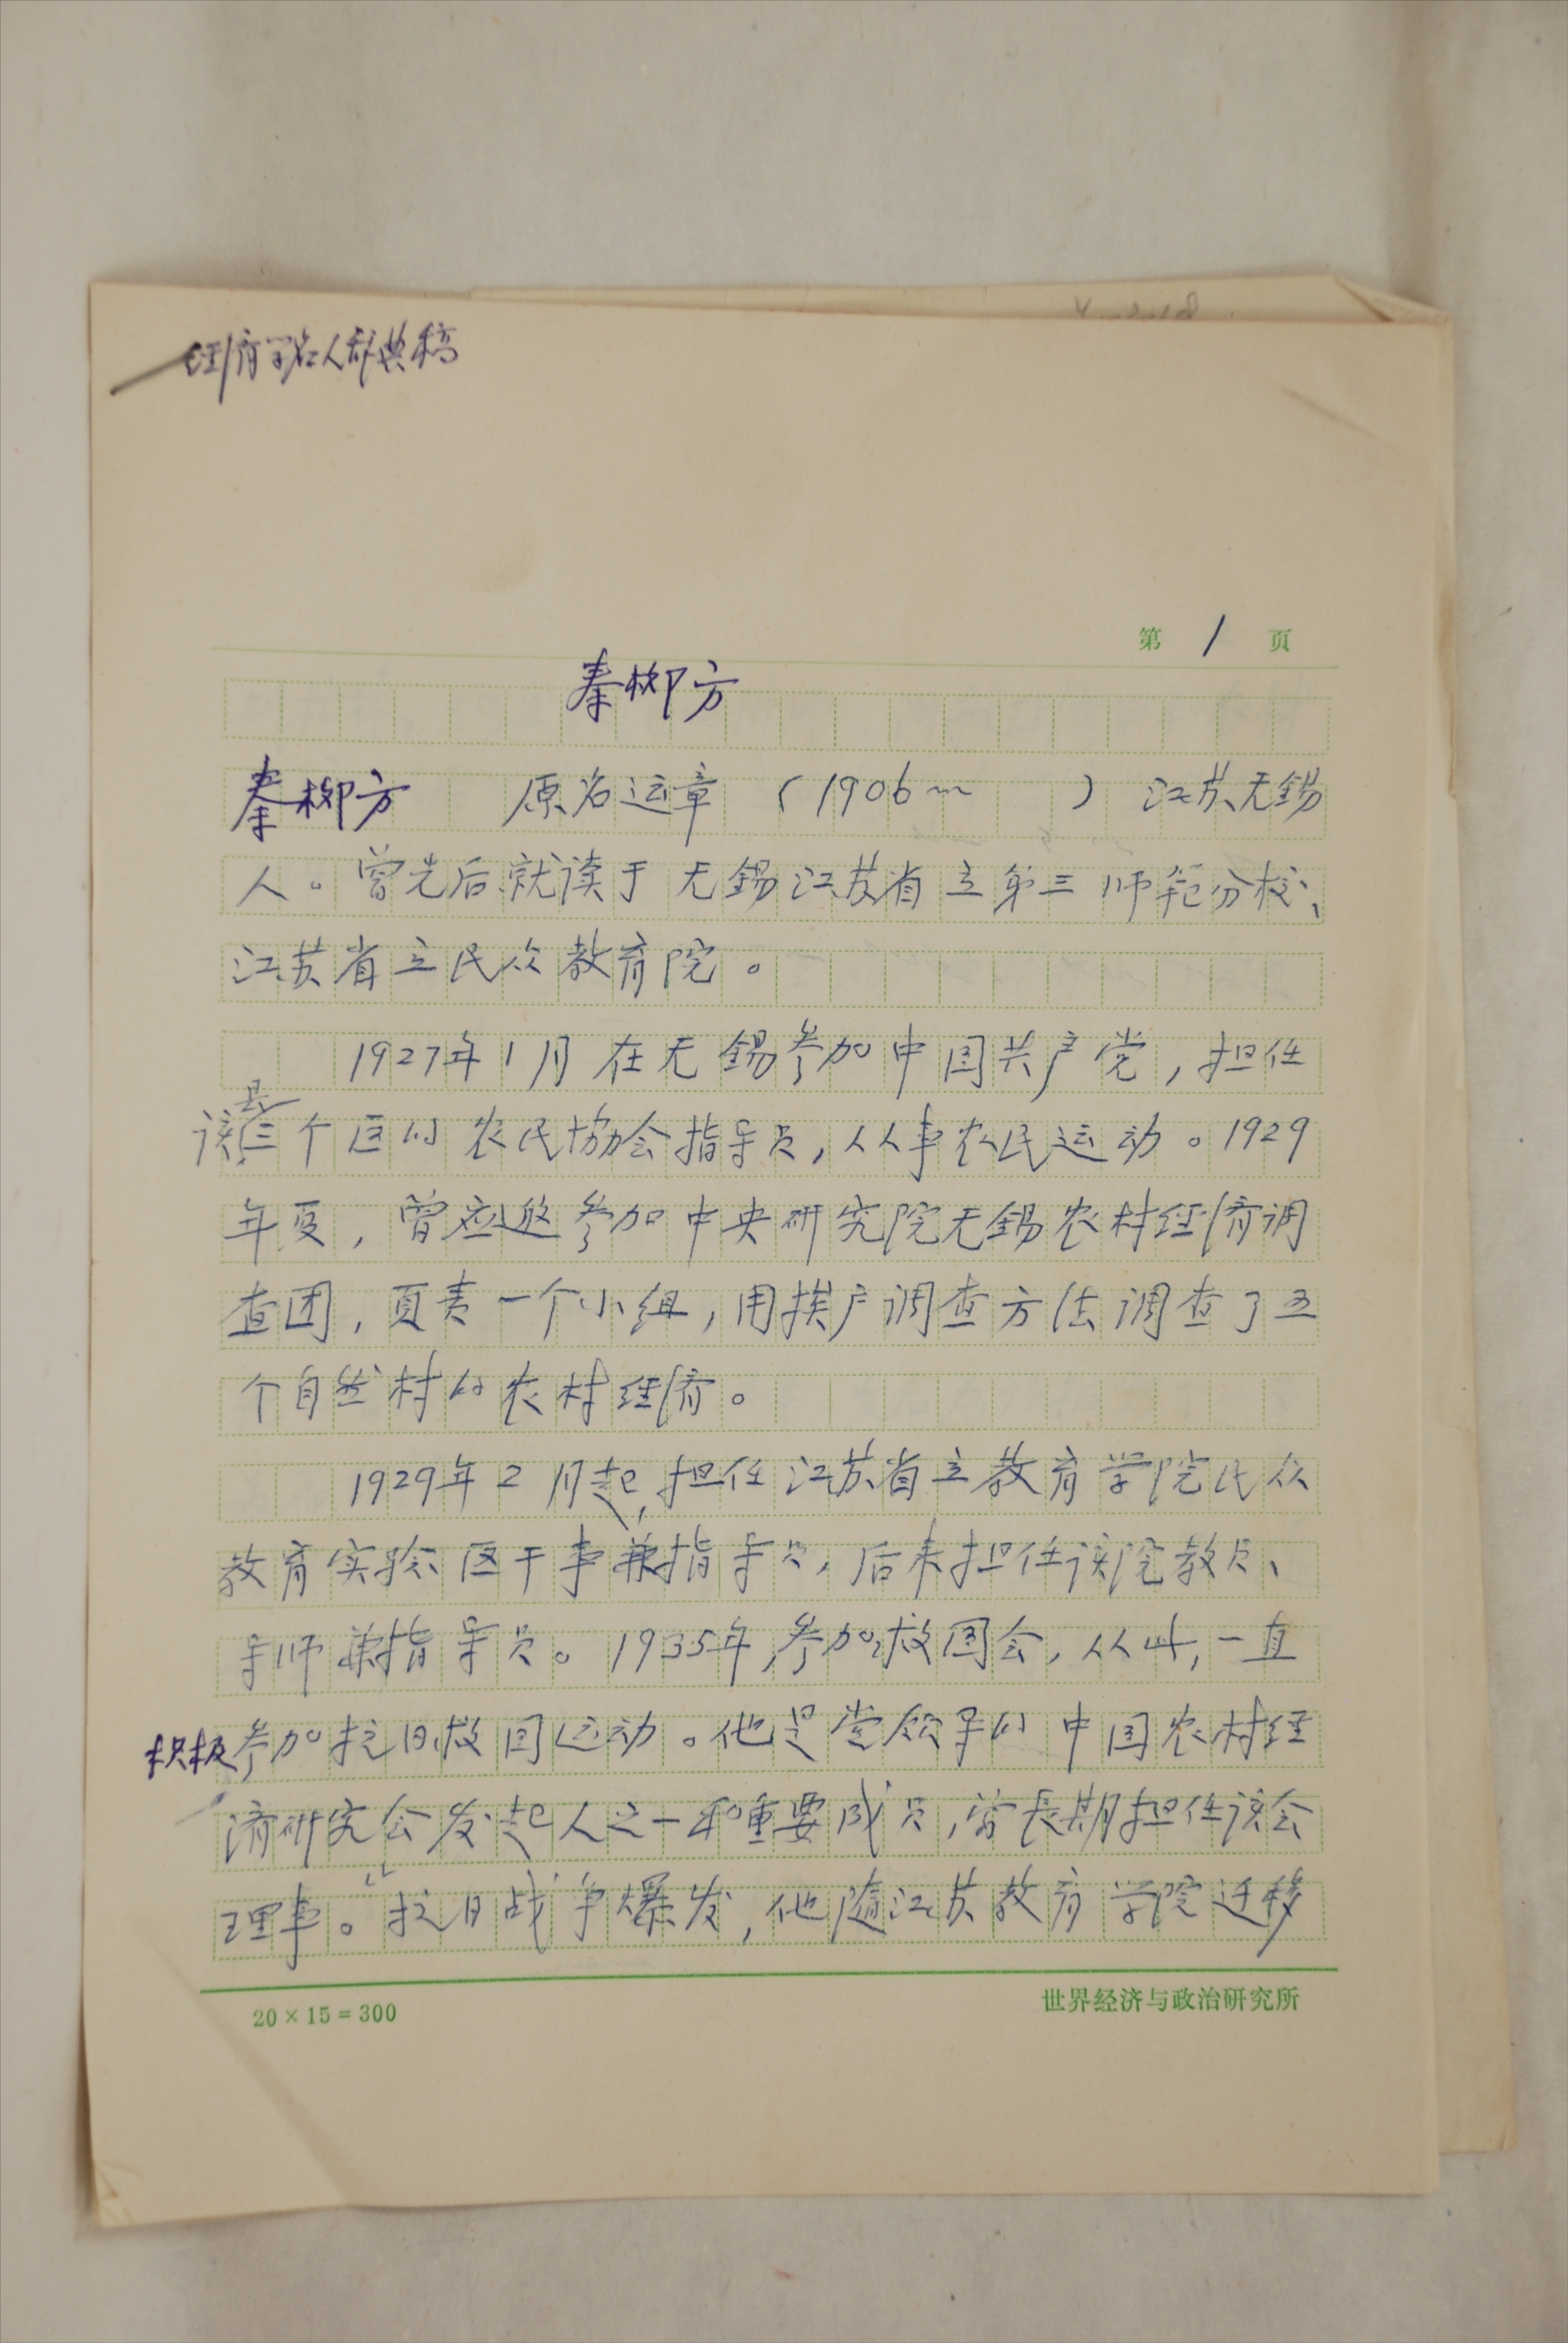 经济学名人辞典稿
第 1 页
秦柳方
秦柳方 原名运章 (1906— ) 江苏无锡
人。曾先后就读于无锡江苏省立第三师范分校、
江苏省立民众教育院。
1927年1月在无锡参加中国共产党,担任
该县三个区的农民协会指导员,从事农民运动。1929
年夏,曾应邀参加中央研究院无锡农村经济调
查团,负责一个小组,用挨户调查方法调查了五
个自然村的农村经济。
1929年2月起,担任江苏省立教育学院民众
教育实验区干事兼指导员,后来担任该院教员、
导师兼指导员。1935年,参加救国会,从此,一直
积极参加抗日救国运动。他是党领导的中国农村经
济研究会发起人之一和重要成员,曾长期担任该会
理事。抗日战争爆发,他随江苏教育学院迁移
20×15=300
世界经济与政治研究所